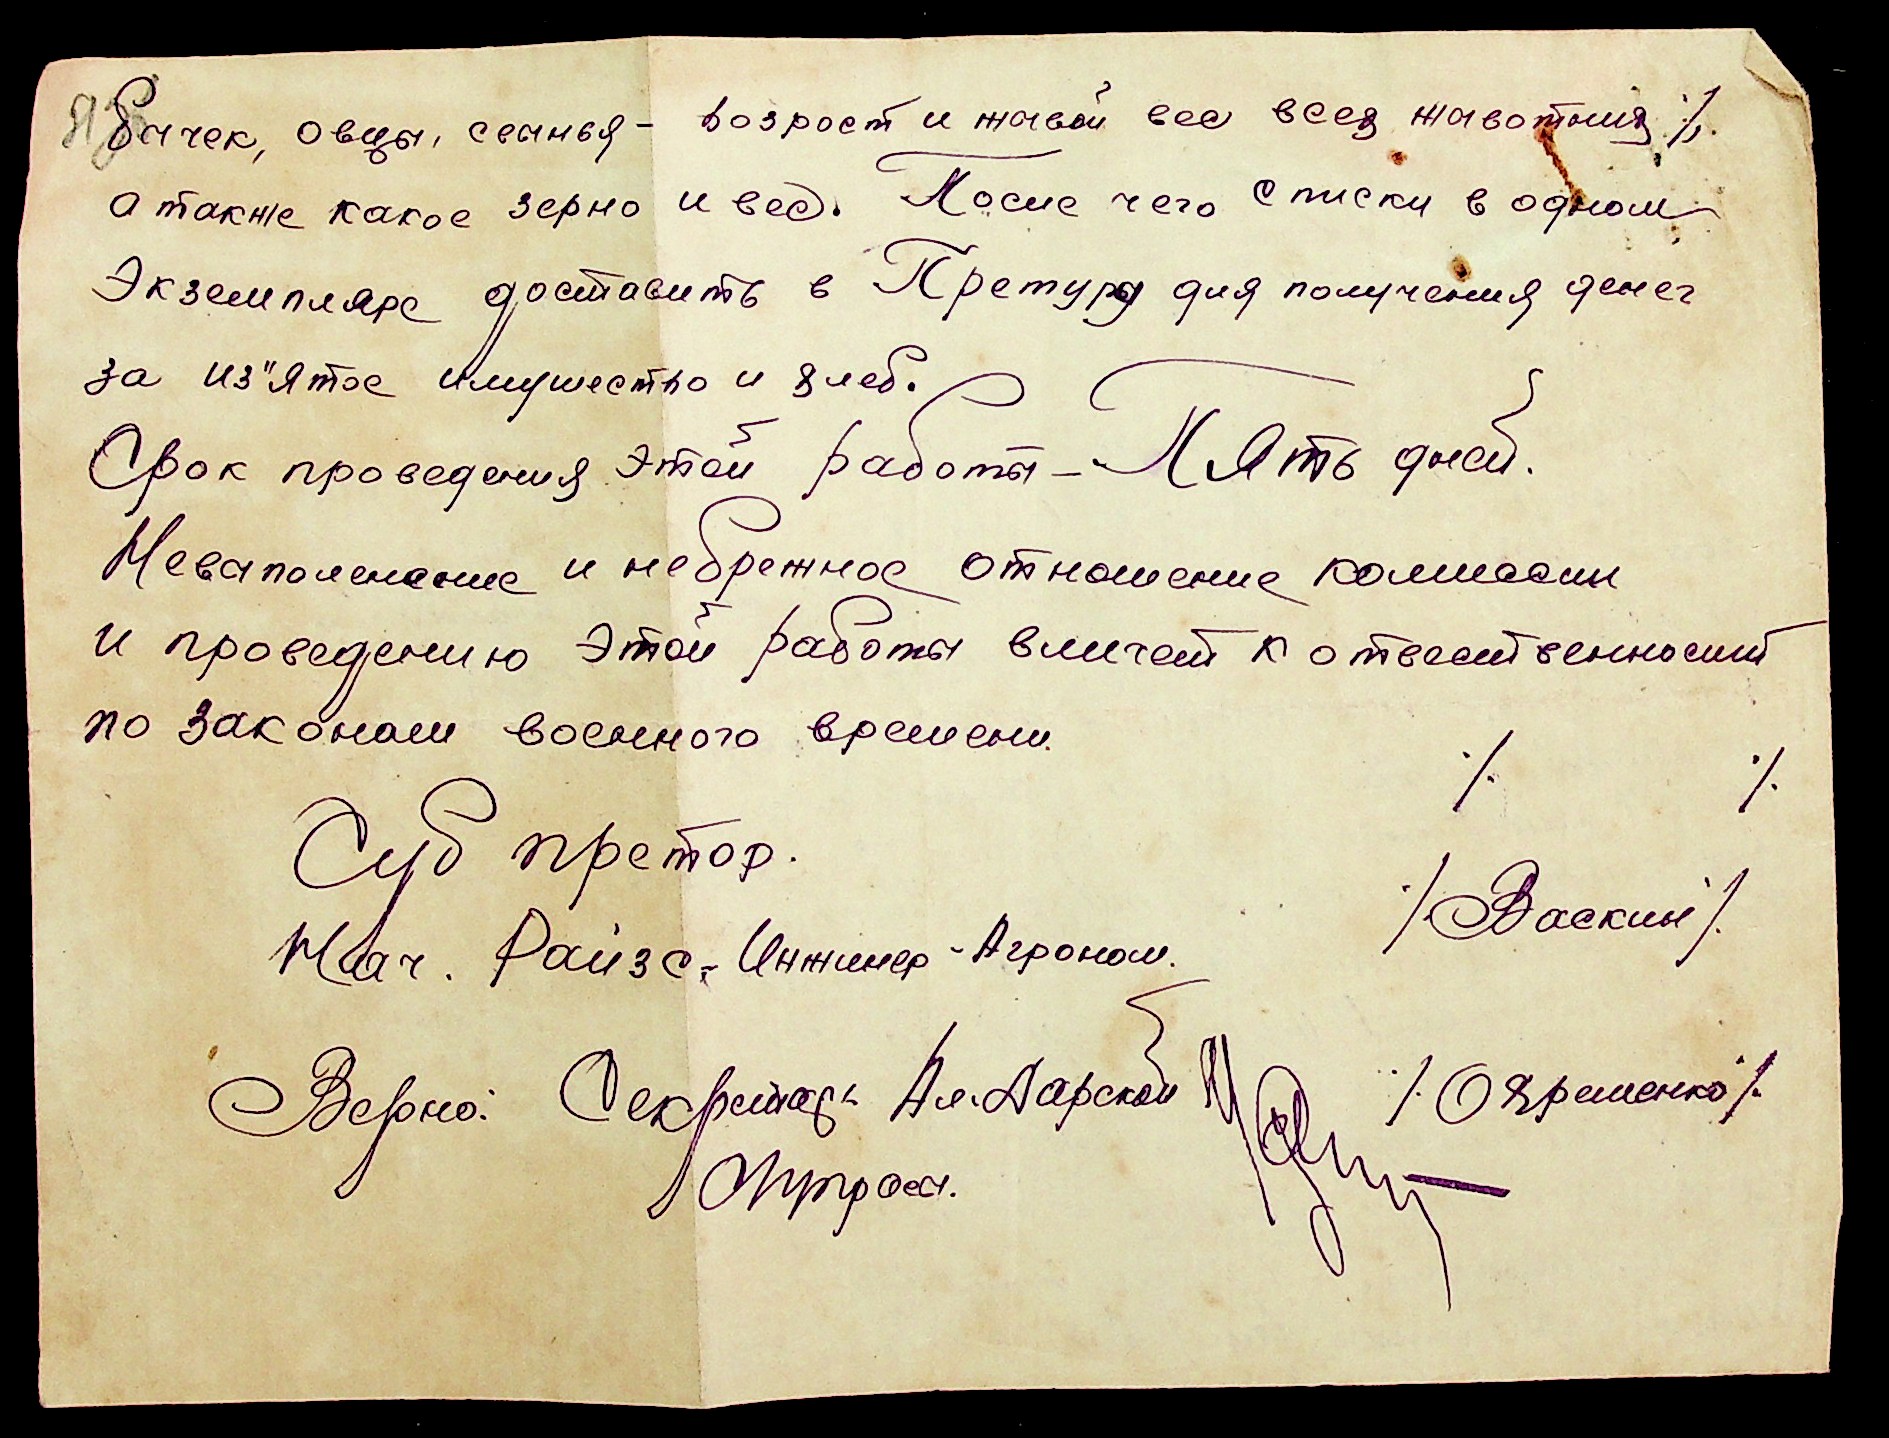 бычек, овцы, свинья – возрост и живой вес всех животных ./.
а также какое зерно и вес. После чего списки в одном
экземпляре доставить в Претуру для получения денег
за из"ятое имущество и хлеб.
Срок проведения этой работы – Пять дней.
Невыполенение и небрежное отношение комиссии
и проведению этой работы вличет к ответственности
по законам военного времени.
./. ./.
Суб претор.
Нач. Райзо, Инжинер-Агроном. ./.Васкин./.
Верно: Секретарь Ал. Дарской ./.Охременко./.